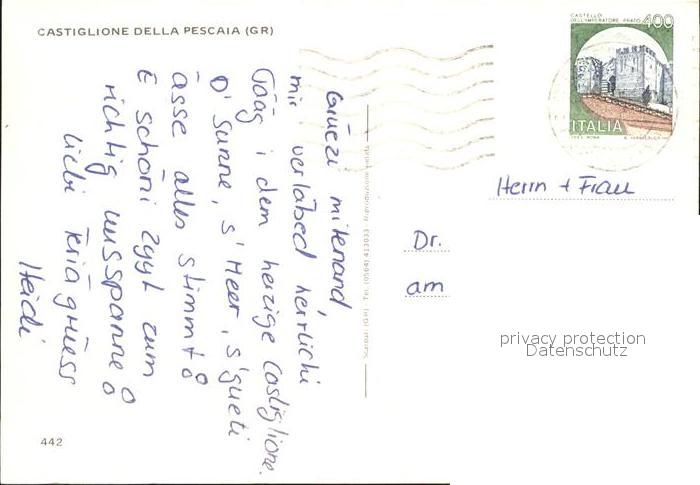 CASTIGLIONE DELLA PESCAIA (GR)
Grüezi mitenand,
mir verläbed herrlichi
Tääg i dem herzige Castiglione.
D'Sunne, s'Meer, s'gueti
ässe alles stimmt!
E schöni Zyyt zum
richtig uusspanne!
liebi Feriägrüess
Heidi
442
CASTELLO
DELL'IMPERATORE PRATO 400
ITALIA
Herrn + Frau
Dr.
am
privacy protection
Datenschutz